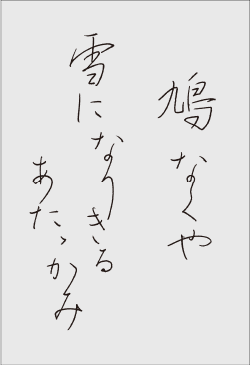 鳩なくや
雪になりきる
あたゝかみ